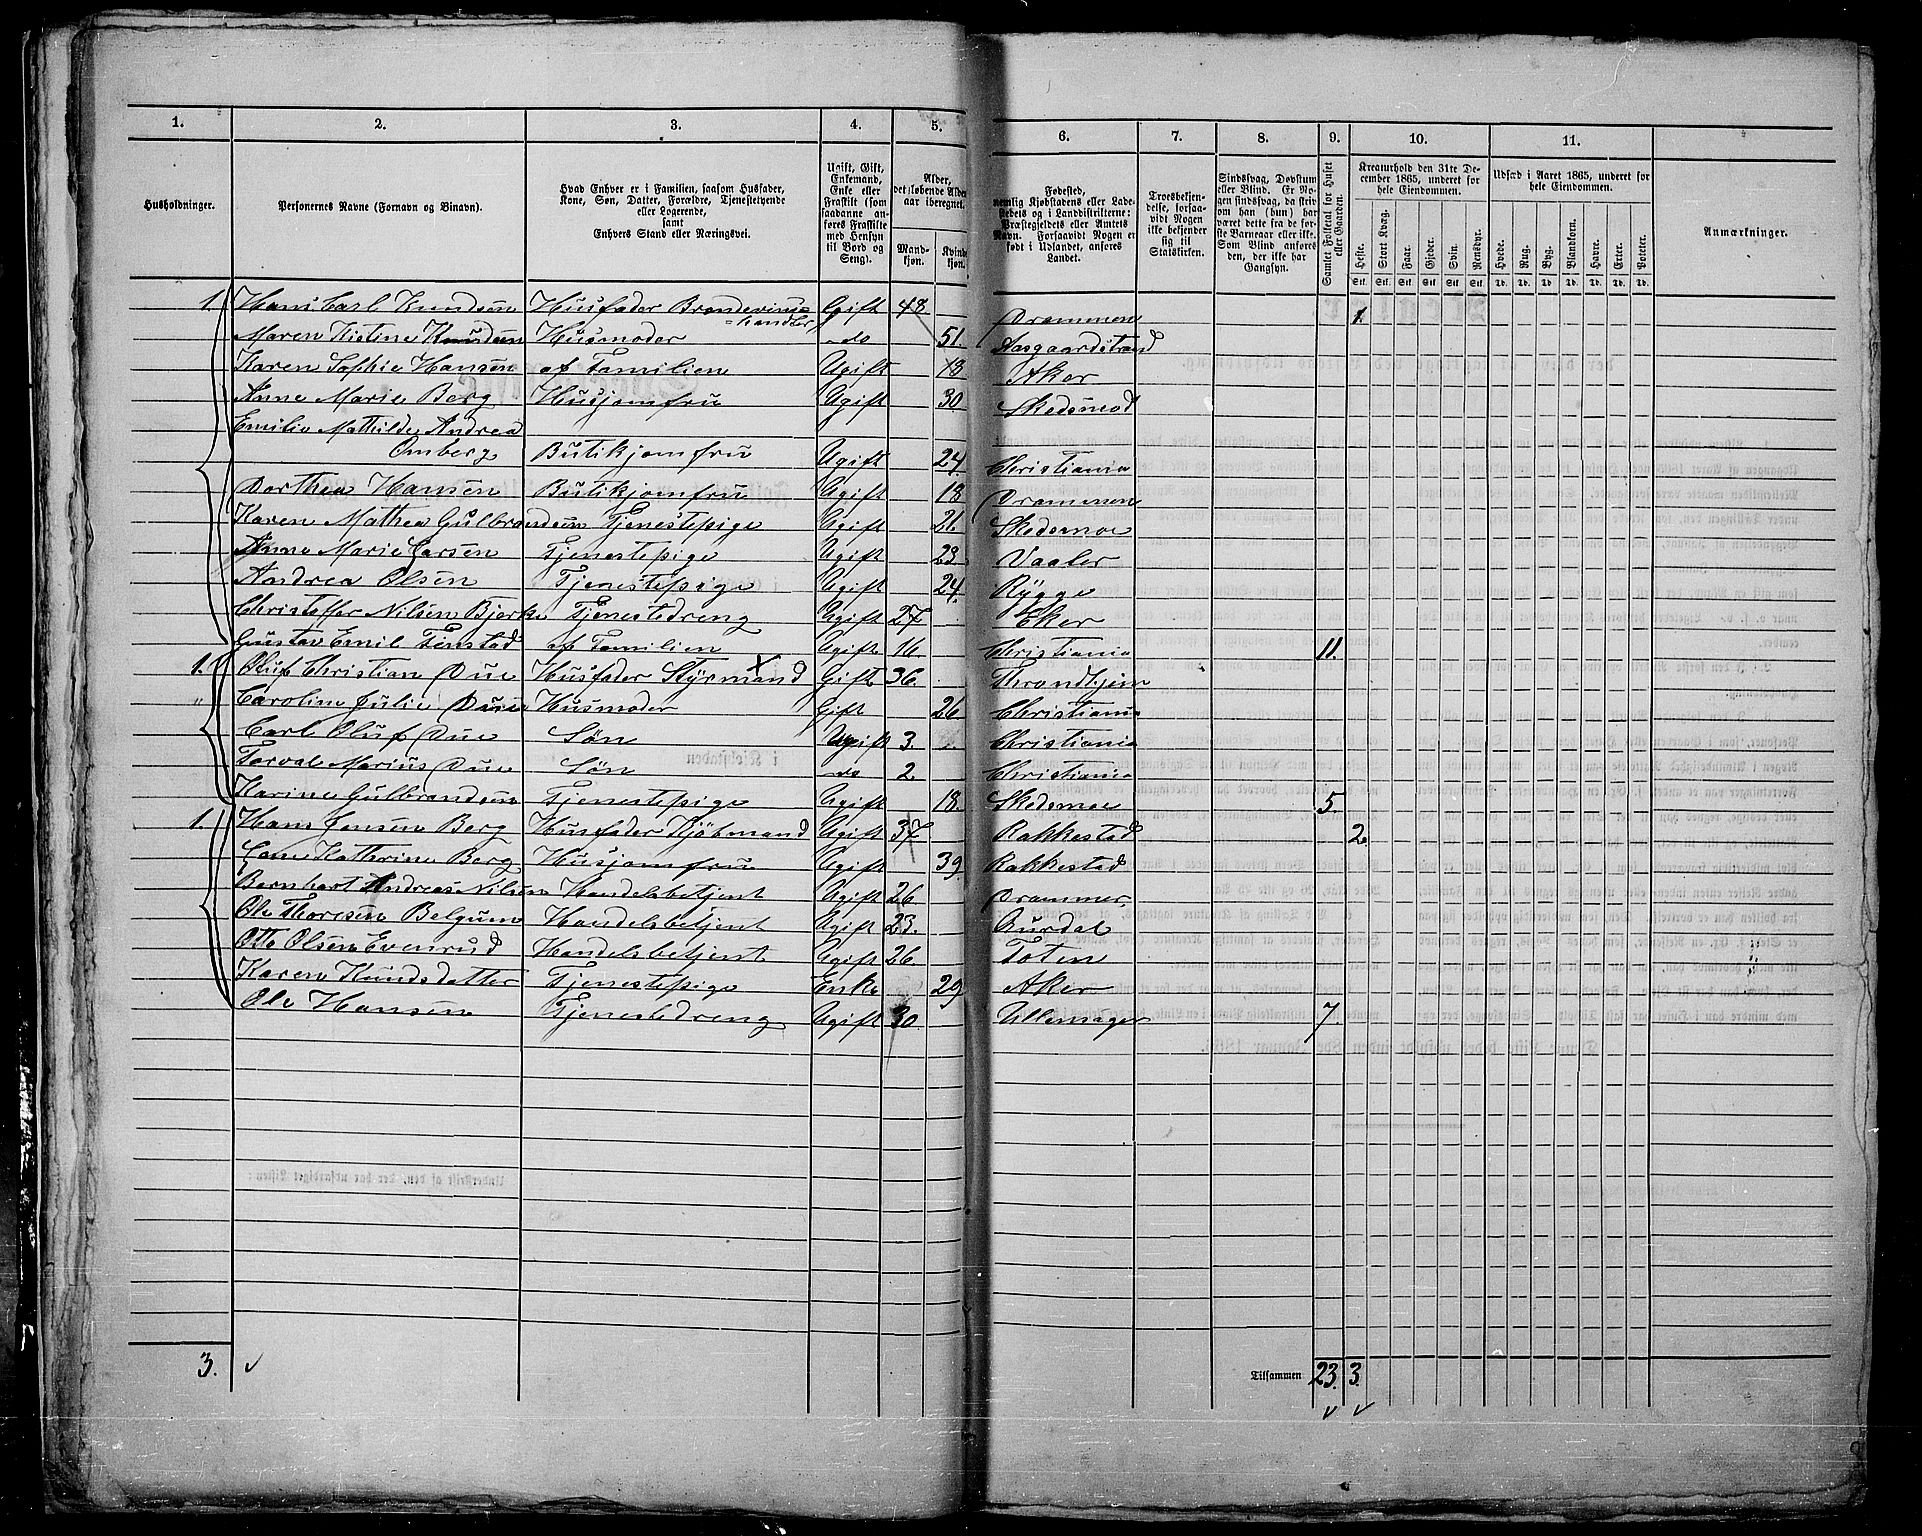 1. 2. 3. 4. 5. 6. 7. 8. 9. 10. 11.
Husholdninger.
Personernes Navne (Fornavn og Binavn).
Hvad Enhver er i Familien, saasom Husfader,
Kone, Søn, Datter, Forældre, Tjenestetyende
eller Logerende,
samt
Enhvers Stand eller Næringsvei.
Ugift, Gift,
Enkemand,
Enke eller
Fraskilt (som
saadanne an-
føres Fraskilte
med Hensyn
til Bord og
Seng).
Alder,
det løbende Alders-
aar iberegnet.
Mand-
kjøn.
Kvinde-
kjøn.
Fødested,
nemlig Kjøbstadens eller Lade-
stedets og i Landdistrikterne:
Præstegjeldets eller Amtets
Navn. Forsaavidt Nogen er
født i Udlandet, anføres
Landet.
Troesbekjen-
delse, forsaa-
vidt Nogen
ikke bekjender
sig til
Statskirken.
Sindssvag, Døvstum
eller Blind. Er No-
gen sindssvag, da skriv
om han (hun) har
været dette fra de før-
ste Barneaar eller ikke.
Som Blind anføres
den, der ikke har
Gangsyn.
Samlet Folketal for Huset
eller Gaarden.
Kreaturhold den 31te De-
cember 1865, underet for
hele Eiendommen.
Heste. Stort Kvæg. Faar. Gjeder. Svin. Rensdyr.
Stk. Stk. Stk. Stk. Stk. Stk.
Udsæd i Aaret 1865, underet for
hele Eiendommen.
Hvede. Rug. Byg. Blandkorn. Havre. Erter. Poteter.
Td. Td. Td. Td. Td. Td. Td.
Anmærkninger.
1. Hans Carl Knudsen Husfader Brændeviins= Gift 48 Drammen 1.
=handler,
Maren Kistine Knudsen Husmoder do 51. Aasgaardstrand
Karen Sophie Hansen af Familien Ugift 18 Aker
Anne Marie Berg Husjomfru Ugift 30 Skedsmod
Emilie Mathilde Andrea
Omberg Butikjomfru Ugift 24. Christiania
Dorthea Hansen Butikjomfru Ugift 18 Drammen
Karen Mathea Gulbrandsen Tjenestepige Ugift 21. Skedsmoe
Anne Marie Larsen Tjenestepige Ugift 23. Vaaler
Andrea Olsen Tjenestepige Ugift 24. Rygge
Christoffer Nilsen Bjerke Tjenestedreng Ugift 27. Eker
Gustav Emil Finstad af Familien Ugift 16. Christiania 11.
1. Oluf Christian Due Husfader Styrmand Gift 36. Throndhjem
" Caroline Julie Due Husmoder Gift 26 Christiania
Carl Oluf Due Søn Ugift 3. Christiania
Torval Marius Due Søn do 2. Christiania
Karine Gulbrandsen Tjenestepige Ugift 18. Skedsmoe 5.
1. Hans Jensen Berg Husfader Kjøbmand Ugift 37 Rakkestad 2.
Lane Kathrine Berg Husjomfru Ugift 39. Rakkestad
Bernhart Andreas Nilsen Handelsbetjent Ugift 26 Drammen.
Ole Thoresen Belgum Handelsbetjent Ugift 23. Burdal
Otto Olsen Evenrud Handelsbetjent Ugift 26. Toten
Karen Knudsdatter Tjenestepige Enke 29 Aker
Ole Hansen Tjenestedreng Ugift 30 Ullensager 7.
3. Tilsammen 23. 3.